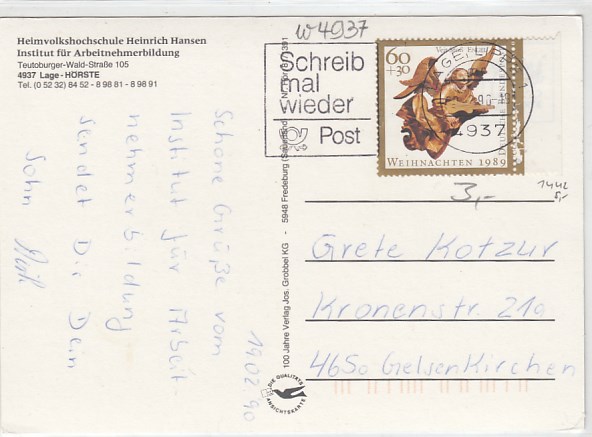 Heimvolkshochschule Heinrich Hansen
Institut für Arbeitnehmerbildung
Teutoburger-Wald-Straße 105
4937 Lage-HÖRSTE
Tel. (0 52 32) 84 52 - 8 98 81 - 8 98 91
w4937
Schreib
mal
wieder
Post
60
+30
4937
WEIHNACHTEN 1989
3,-
1442
Grete Kotzur
Kronenstr. 21a
4650 Gelsenkirchen
19 02 90
Schöne Grüße vom
Institut für Arbeit-
nehmerbildung
sendet Dir Dein
Sohn
100 Jahre Verlag Jos. Grobbel KG - 5948 Fredeburg
DIE QUALITÄTS
ANSICHTSKARTE